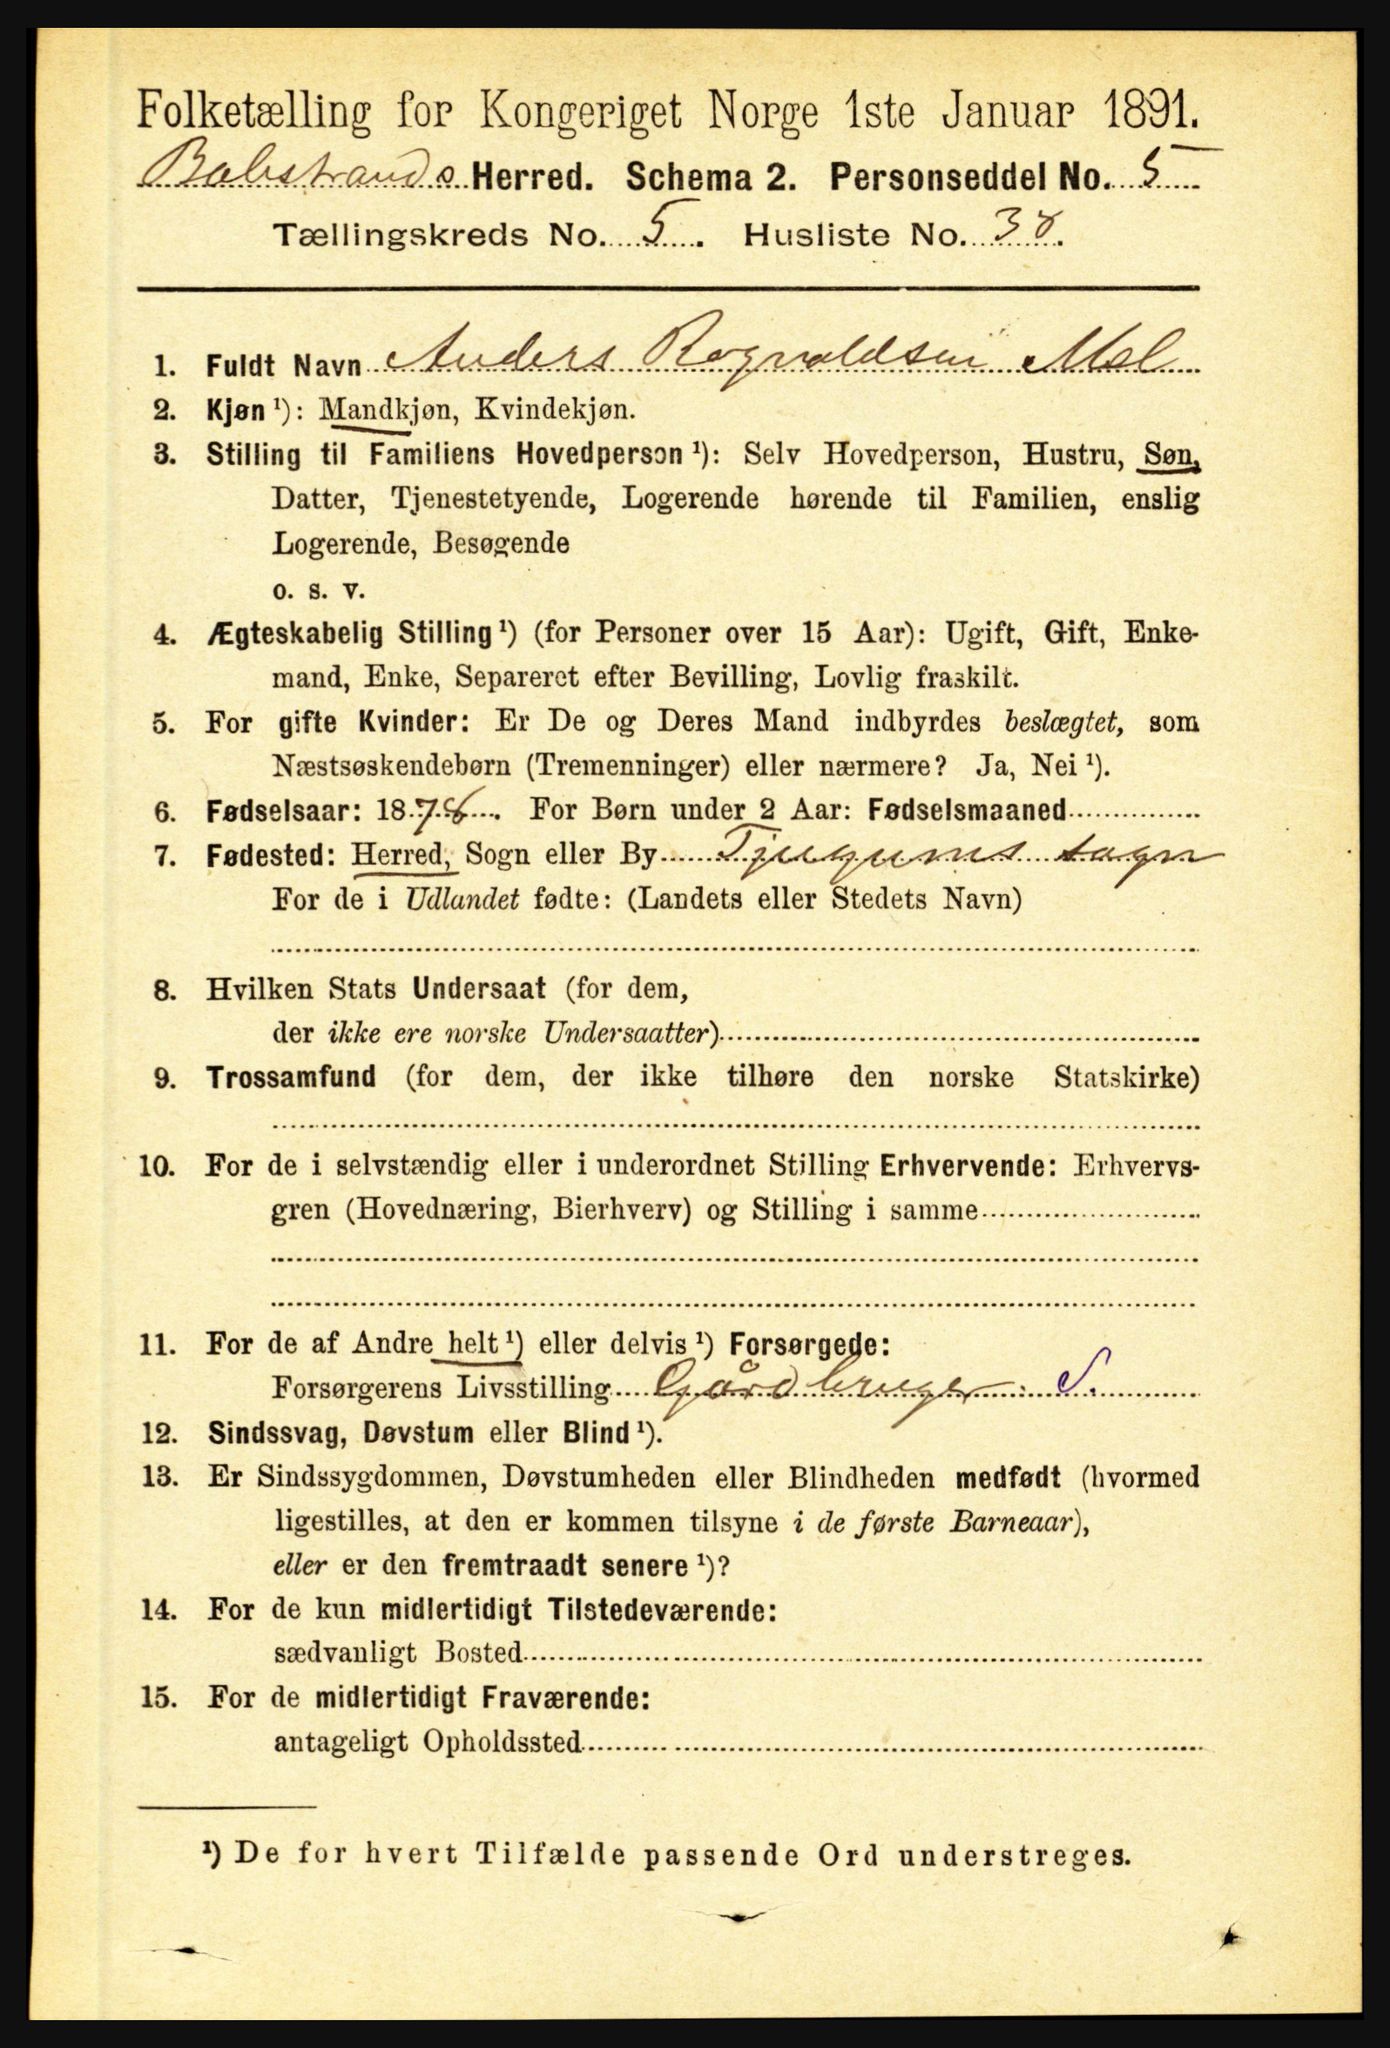 Folketælling for Kongeriget Norge 1ste Januar 1891.
Balestrands Herred. Schema 2. Personseddel No. 5
Tællingskreds No. 5. Husliste No. 38.
1. Fuldt Navn Anders Rognvaldsen Mæl
2. Kjøn ¹): Mandkjøn, Kvindekjøn.
3. Stilling til Familiens Hovedperson ¹): Selv Hovedperson, Hustru, Søn,
Datter, Tjenestetyende, Logerende hørende til Familien, enslig
Logerende, Besøgende
o. s. v.
4. Ægteskabelig Stilling ¹) (for Personer over 15 Aar): Ugift, Gift, Enke-
mand, Enke, Separeret efter Bevilling, Lovlig fraskilt.
5. For gifte Kvinder: Er De og Deres Mand indbyrdes beslægtet, som
Næstsøskendebørn (Tremenninger) eller nærmere? Ja, Nei ¹).
6. Fødselsaar: 1878. For Børn under 2 Aar: Fødselsmaaned
7. Fødested: Herred, Sogn eller By Tjugums sogn
For de i Udlandet fødte: (Landets eller Stedets Navn)
8. Hvilken Stats Undersaat (for dem,
der ikke ere norske Undersaatter)
9. Trossamfund (for dem, der ikke tilhøre den norske Statskirke)
10. For de i selvstændig eller i underordnet Stilling Erhvervende: Erhvervs-
gren (Hovednæring, Bierhverv) og Stilling i samme
11. For de af Andre helt ¹) eller delvis ¹) Forsørgede:
Forsørgerens Livsstilling Gårdbruger. S.
12. Sindssvag, Døvstum eller Blind ¹).
13. Er Sindssygdommen, Døvstumheden eller Blindheden medfødt (hvormed
ligestilles, at den er kommen tilsyne i de første Barneaar),
eller er den fremtraadt senere ¹)?
14. For de kun midlertidigt Tilstedeværende:
sædvanligt Bosted
15. For de midlertidigt Fraværende:
antageligt Opholdssted
¹) De for hvert Tilfælde passende Ord understreges.